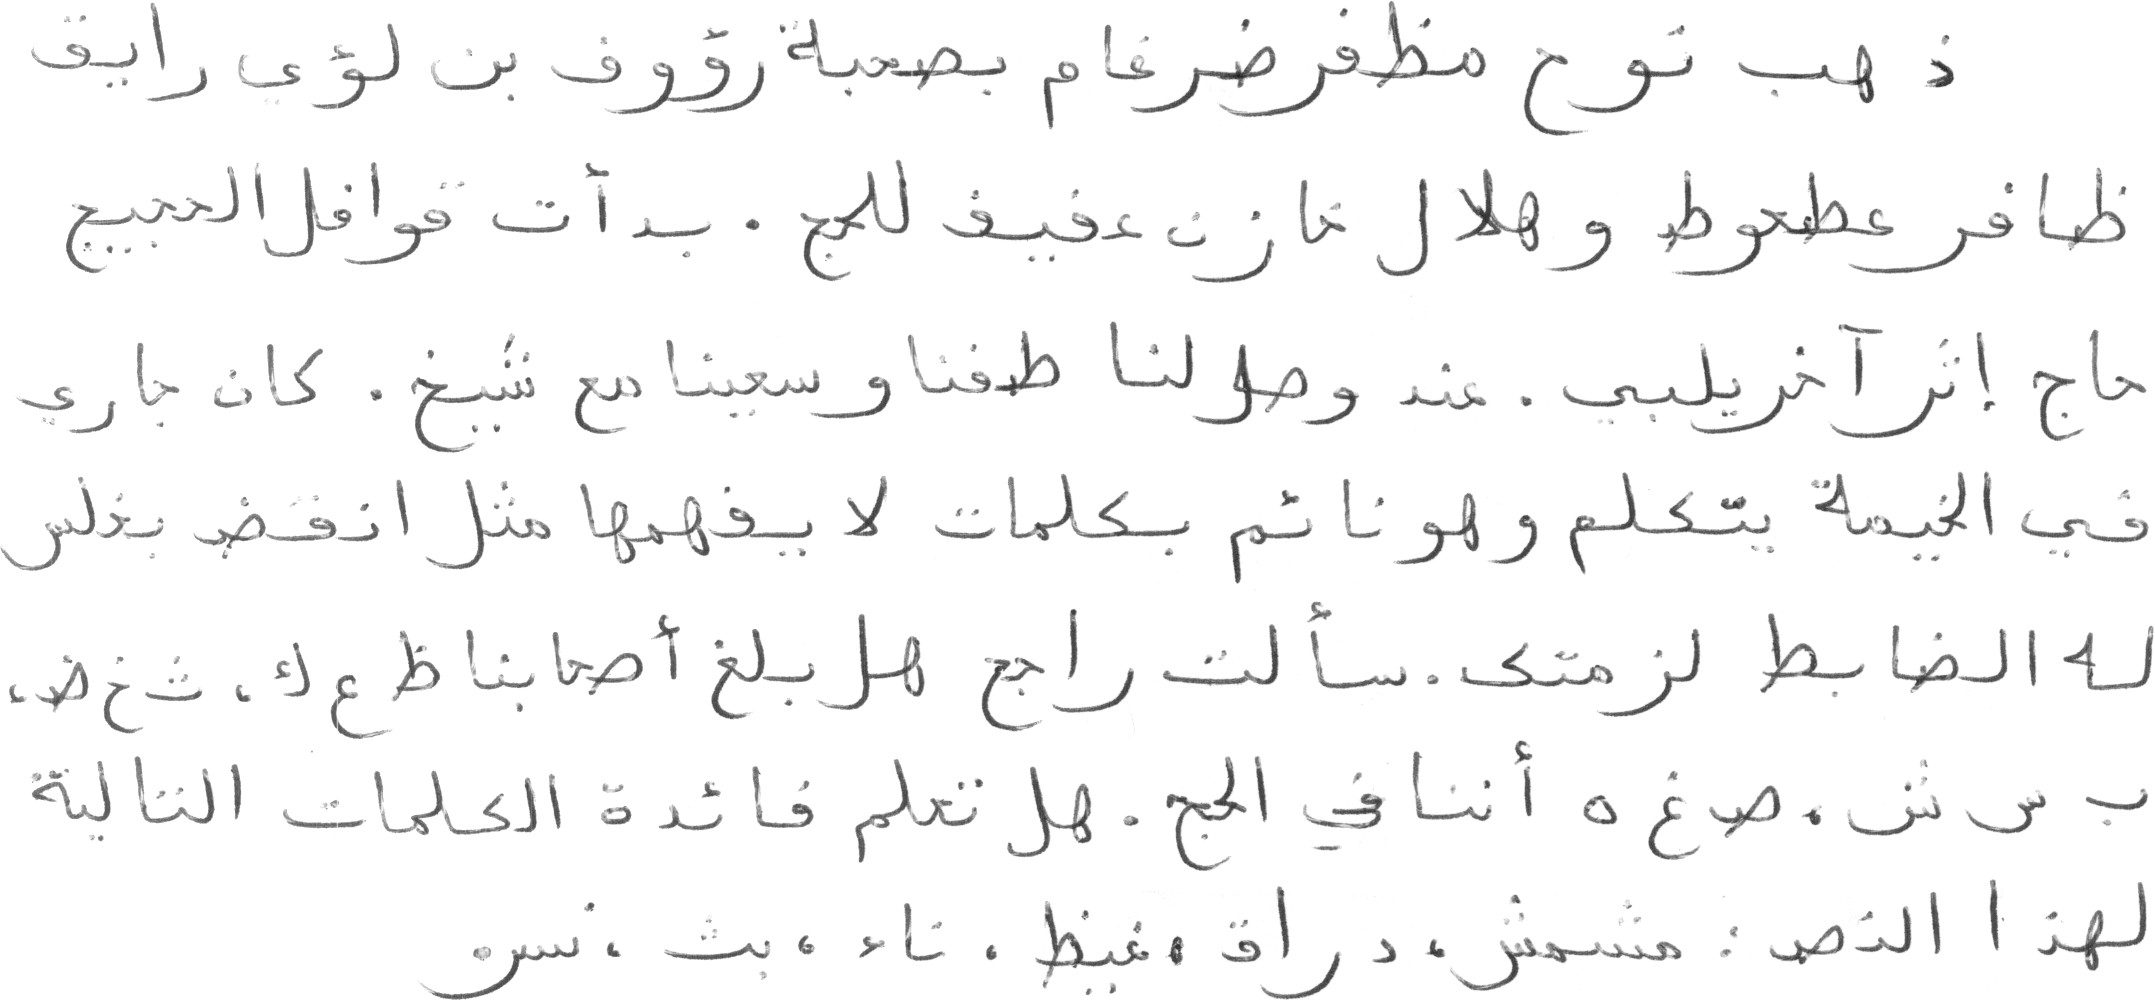 ذهب نوح مظفر ضرغام بصحبة رؤوف بن لؤي رايق
ظافر عطعوط و هلال خازن عفيف للحج . بدأت قوافل الحجيج
حاج إثر آخر يلبي . عند وصولنا طفنا و سعينا مع شيخ . كان جاري
في الخيمة يتكلم و هو نائم بكلمات لا يفهمها مثل انقض بغلس
له الضابط لزمتك . سألت راجح هل بلغ أصحابنا ظ ع ك ، ث خ ض ،
ب س ش ، ص غ ه أننا في الحج . هل تعلم فائدة الكلمات التالية
لهذا النص : مشمش ، دراق ، غيظ ، ناء ، بث ، نسر